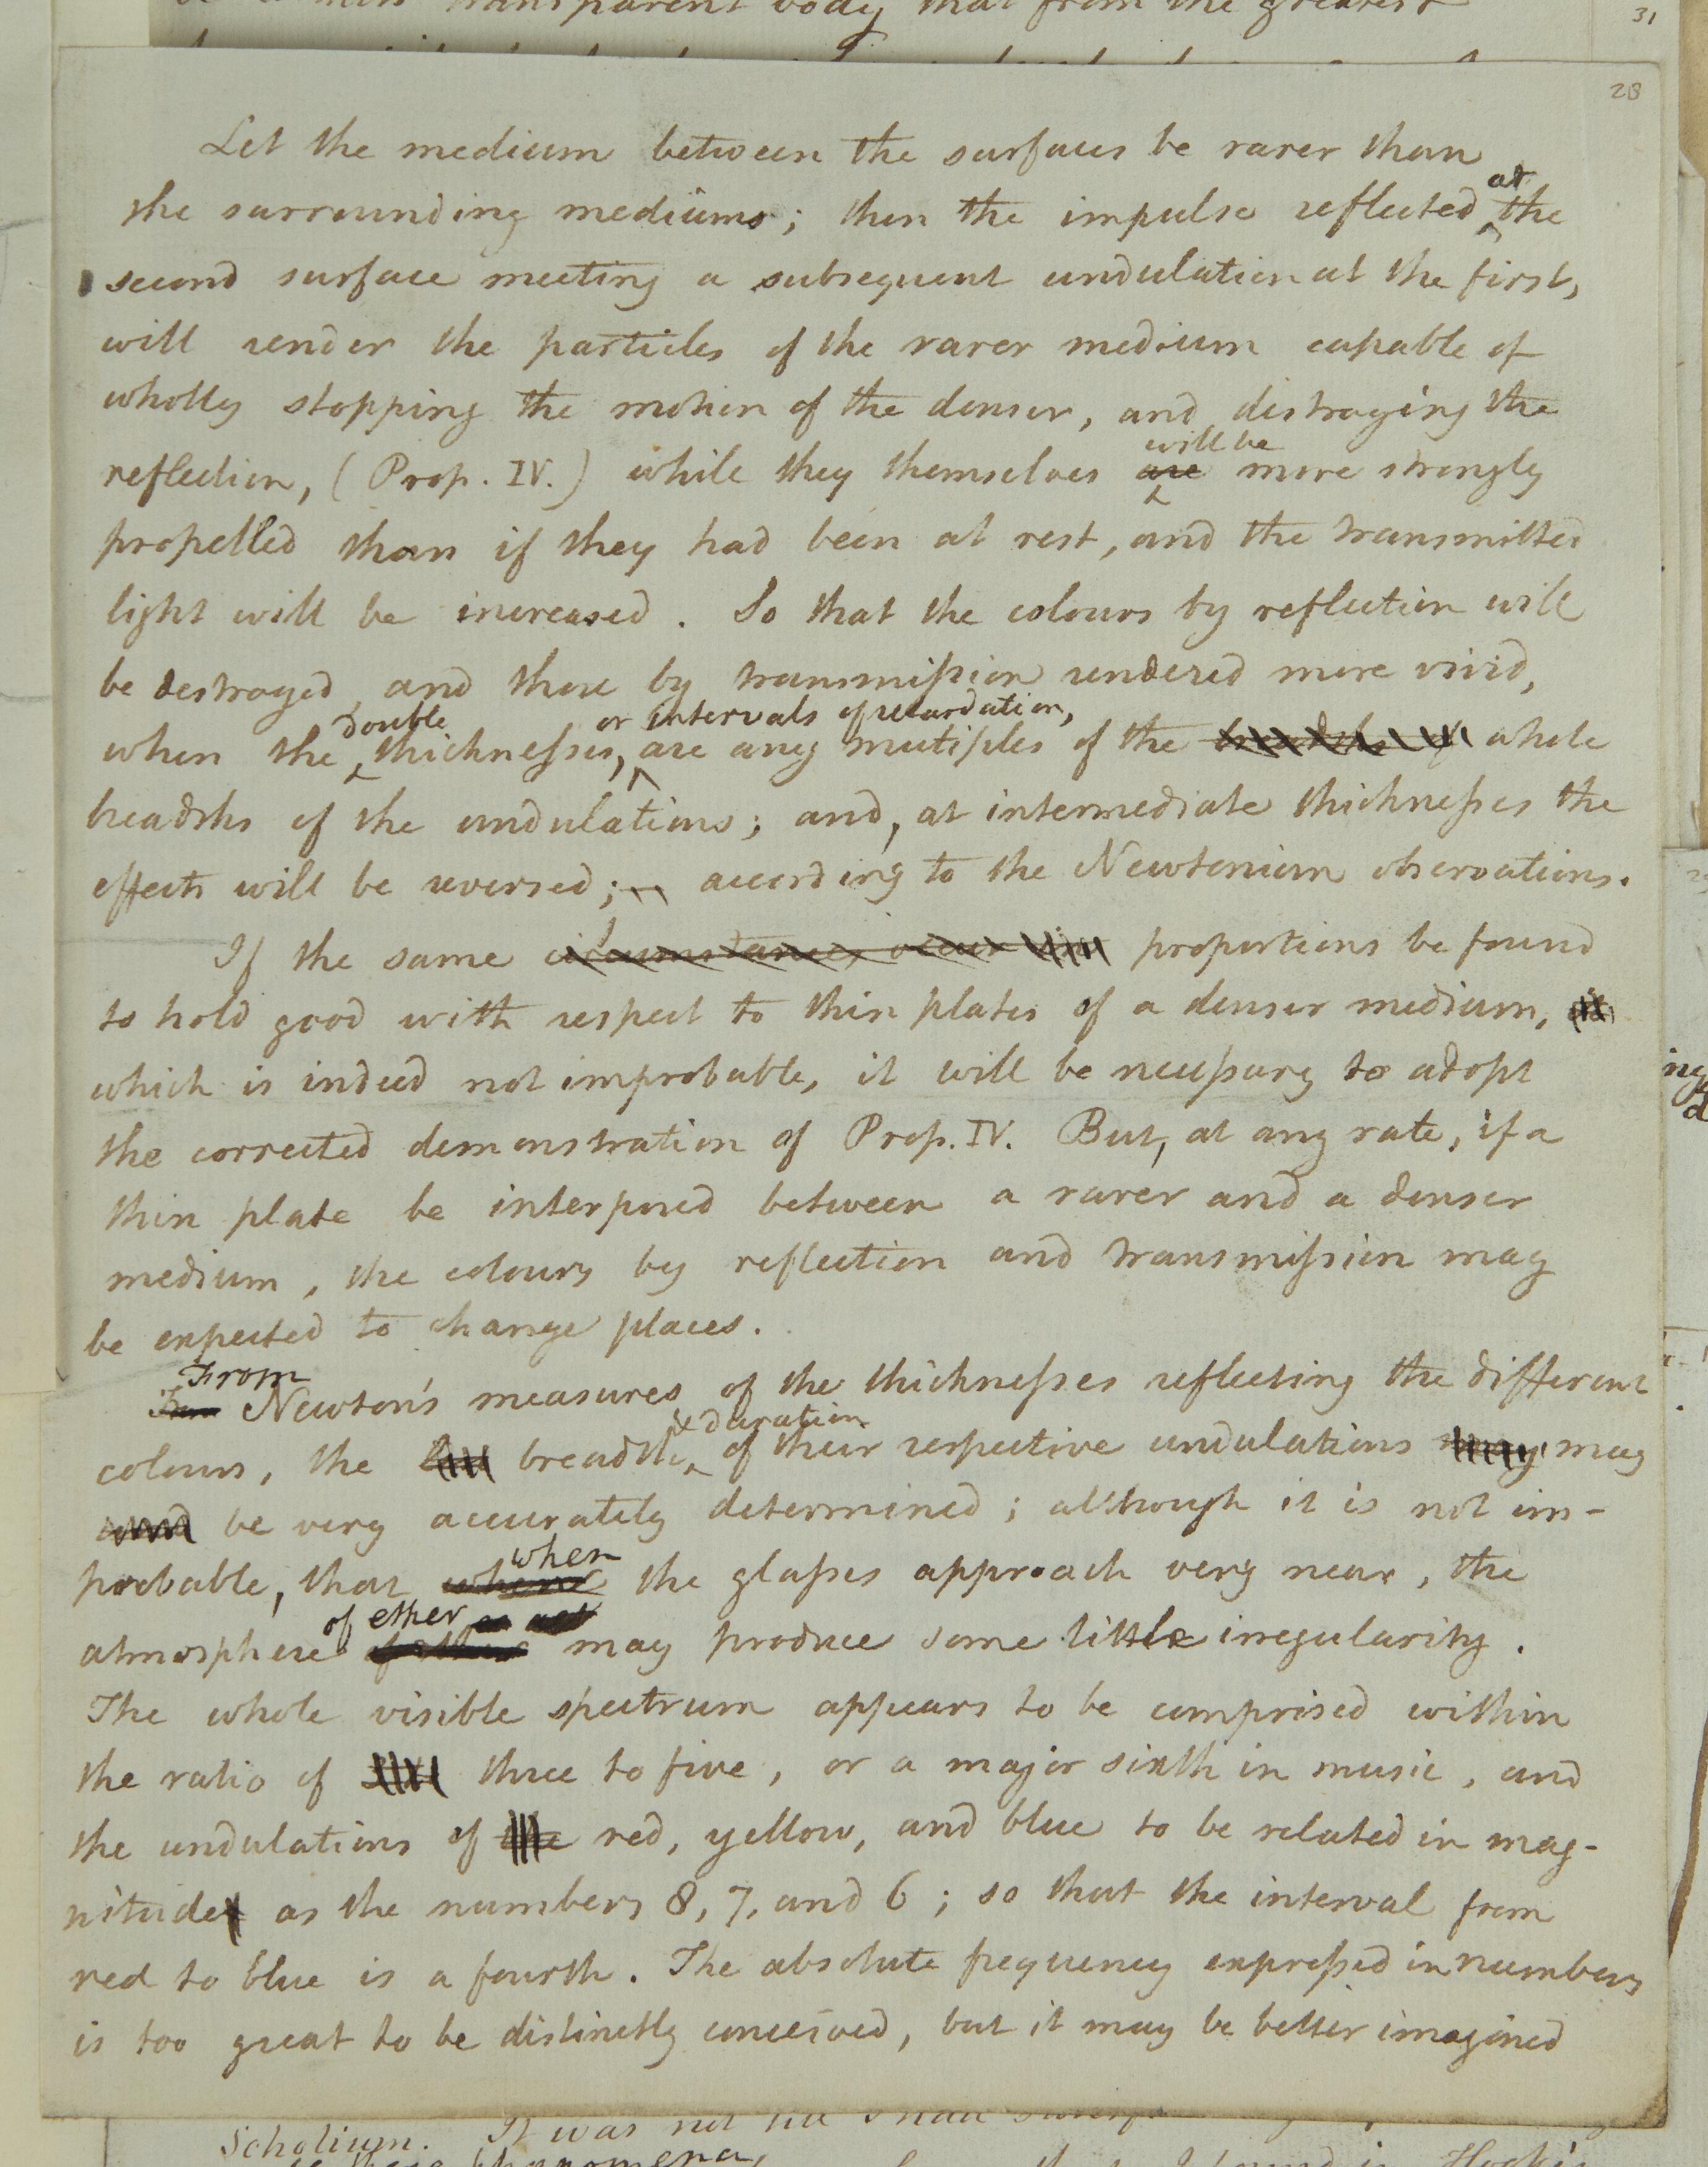 transparent body that from the greatest
31
28
Let the medium between the surfaces be rarer than
the surrounding mediums; then the impulse reflected at the
second surface meeting a subsequent undulation at the first,
will render the particles of the rarer medium capable of
wholly stopping the motion of the denser, and destroying the
reflection, (Prop. IV.) while they themselves are will be more strongly
propelled than if they had been at rest, and the transmitted
light will be increased. So that the colours by reflection will
be destroyed, and those by transmission rendered more vivid,
when the double thicknesses, or intervals of retardation, are any mutiples of the whole
breadths of the undulations; and, at intermediate thicknesses the
effects will be reversed; according to the Newtonian observations.
If the same circumstances occur proportions be found
to hold good with respect to thin plates of a denser medium,
which is indeed not improbable, it will be necessary to adopt
the corrected demonstration of Prop. IV. But, at any rate, if a
thin plate be interposed between a rarer and a denser
medium, the colours by reflection and transmission may
be expected to change places.
From Newton's measures of the thicknesses reflecting the different
colours, the breadth & duration of their respective undulations may
be very accurately determined; although it is not im-
probable, that when the glasses approach very near, the
atmosphere of ether may produce some little irregularity.
The whole visible spectrum appears to be comprised within
the ratio of three to five, or a major sixth in music, and
the undulations of the red, yellow, and blue to be related in mag-
nitude as the numbers 8, 7, and 6; so that the interval from
red to blue is a fourth. The absolute frequency expressed in numbers
is too great to be distinctly conceived, but it may be better imagined
Scholium. It was not till I had
phaenomena,